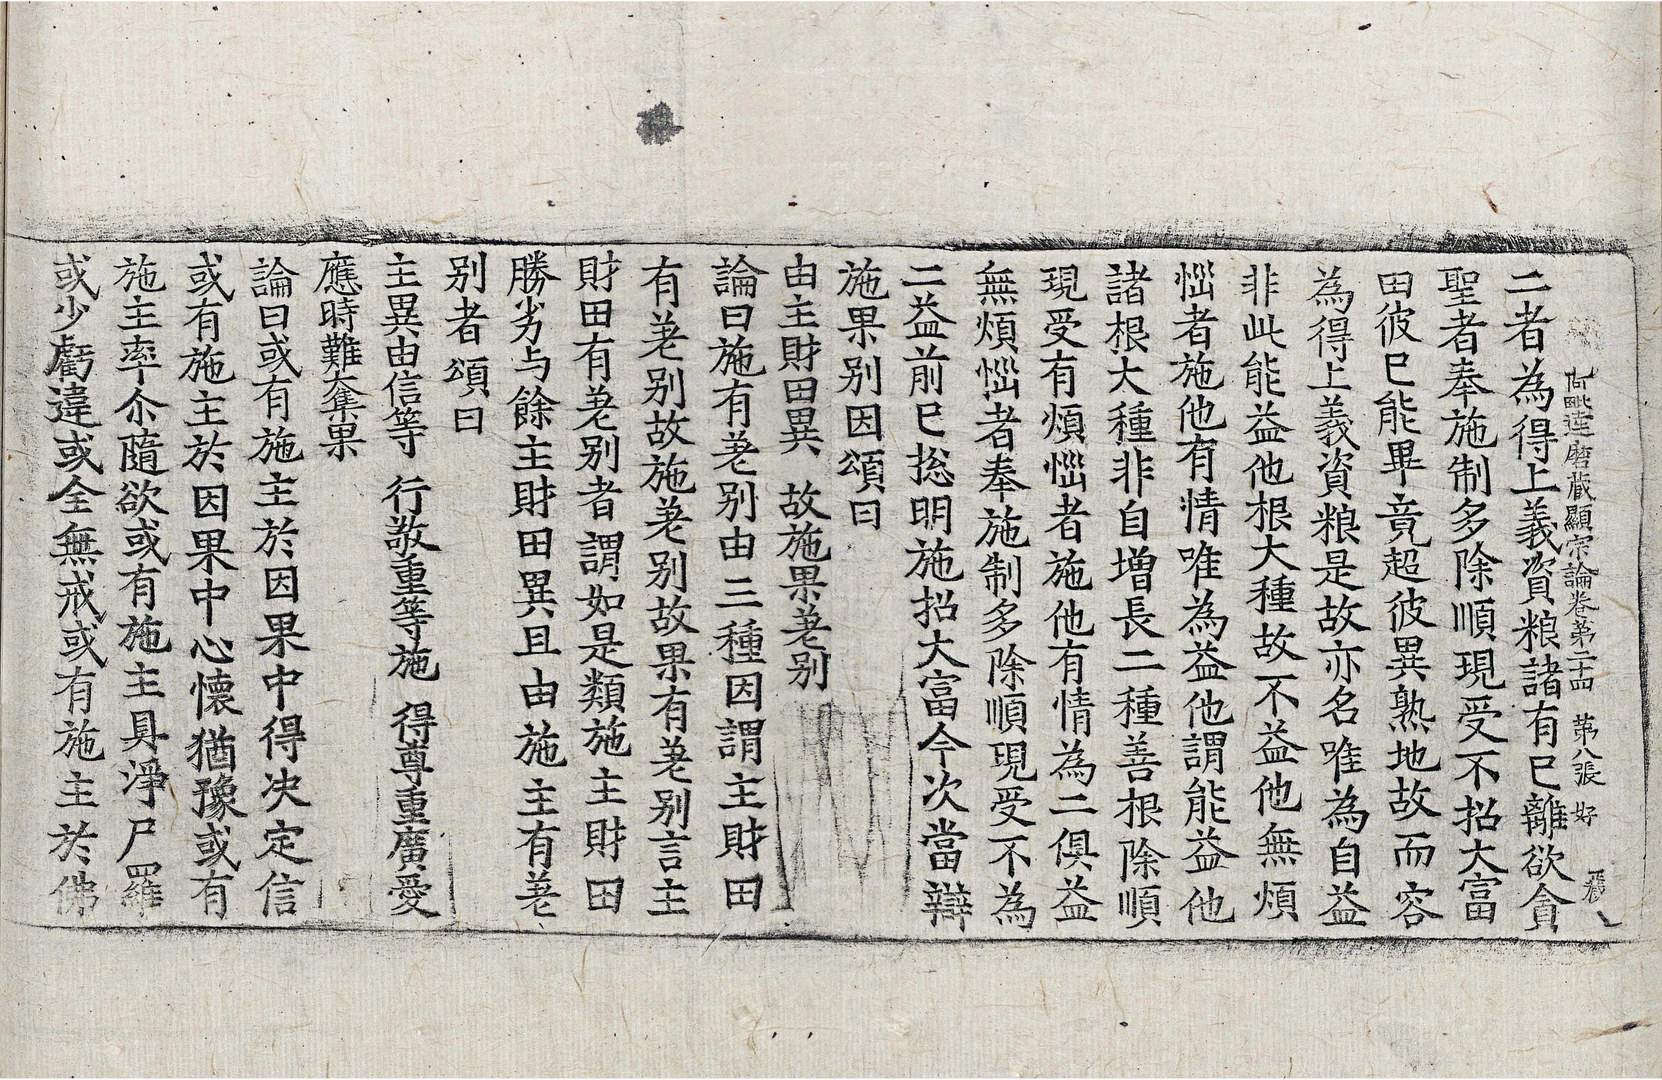 毗達磨蔵顯宗論卷第二十四 第八張 好
二者為得上義資粮諸有已離欲貪
聖者奉施制多除順現受不招大富
田彼已能畢竟超彼異熟地故而容
為得上義資粮是故亦名唯為自益
非此能益他根大種故不益他無煩
惱者施他有情唯為益他謂能益他
諸根大種非自增長二種善根除順
現受有煩惱者施他有情為二俱益
無煩惱者奉施制多除順現受不為
二益前已捴明施招大富今次當辯
施果别因頌曰
由主財田異 故施果差别
論曰施有差别由三種因謂主財田
有差别故施差别故果有差别言主
財田有差别者謂如是類施主財田
勝劣与餘主財田異且由施主有差
别者頌曰
主異由信等 行敬重等施 得尊重廣愛
應時難奪果
論曰或有施主於因果中得决定信
或有施主於因果中心懷猶豫或有
施主率尒隨欲或有施主具淨尸羅
或少虧違或全無戒或有施主於佛